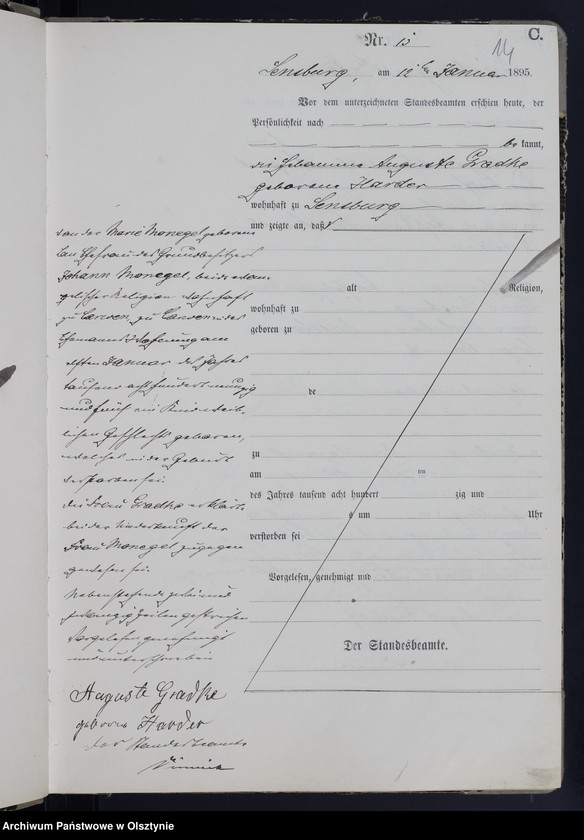 C.
14
Nr. 15
Sensburg, am 12ten Januar 1895.
Vor dem unterzeichneten Standesbeamten erschien heute, der
Persönlichkeit nach
be kannt,
die Hebamme Auguste Gradtke
geborene Harder
wohnhaft zu Sensburg
und zeigte an, daß
von der Marie Monegel geborene
Ehefrau des Grundbesitzers
Johann Monegel, beide evan-
gelischer Religion wohnhaft
zu
Ehemannes Wohnung am
elften Januar des Jahres
tausend achthundert neunzig
und fünf ein Kind weib-
lichen Geschlechts geboren,
welches in der Geburt
verstorben sei.
Die Frau Gradtke erklärte,
bei der Niederkunft der
Frau Monegel zugegen
gewesen sei.
Nebenstehende zwei und
zwanzig Zeilen gestrichen
Vorgelesen genehmigt
und unterschrieben
Auguste Gradtke
geborene Harder
Der Standesbeamte
alt
Religion,
wohnhaft zu
geboren zu
de
zu
am
ten
des Jahres tausend acht hundert zig und
s um Uhr
verstorben sei
Vorgelesen, genehmigt und
Der Standesbeamte.
Archiwum Państwowe w Olsztynie